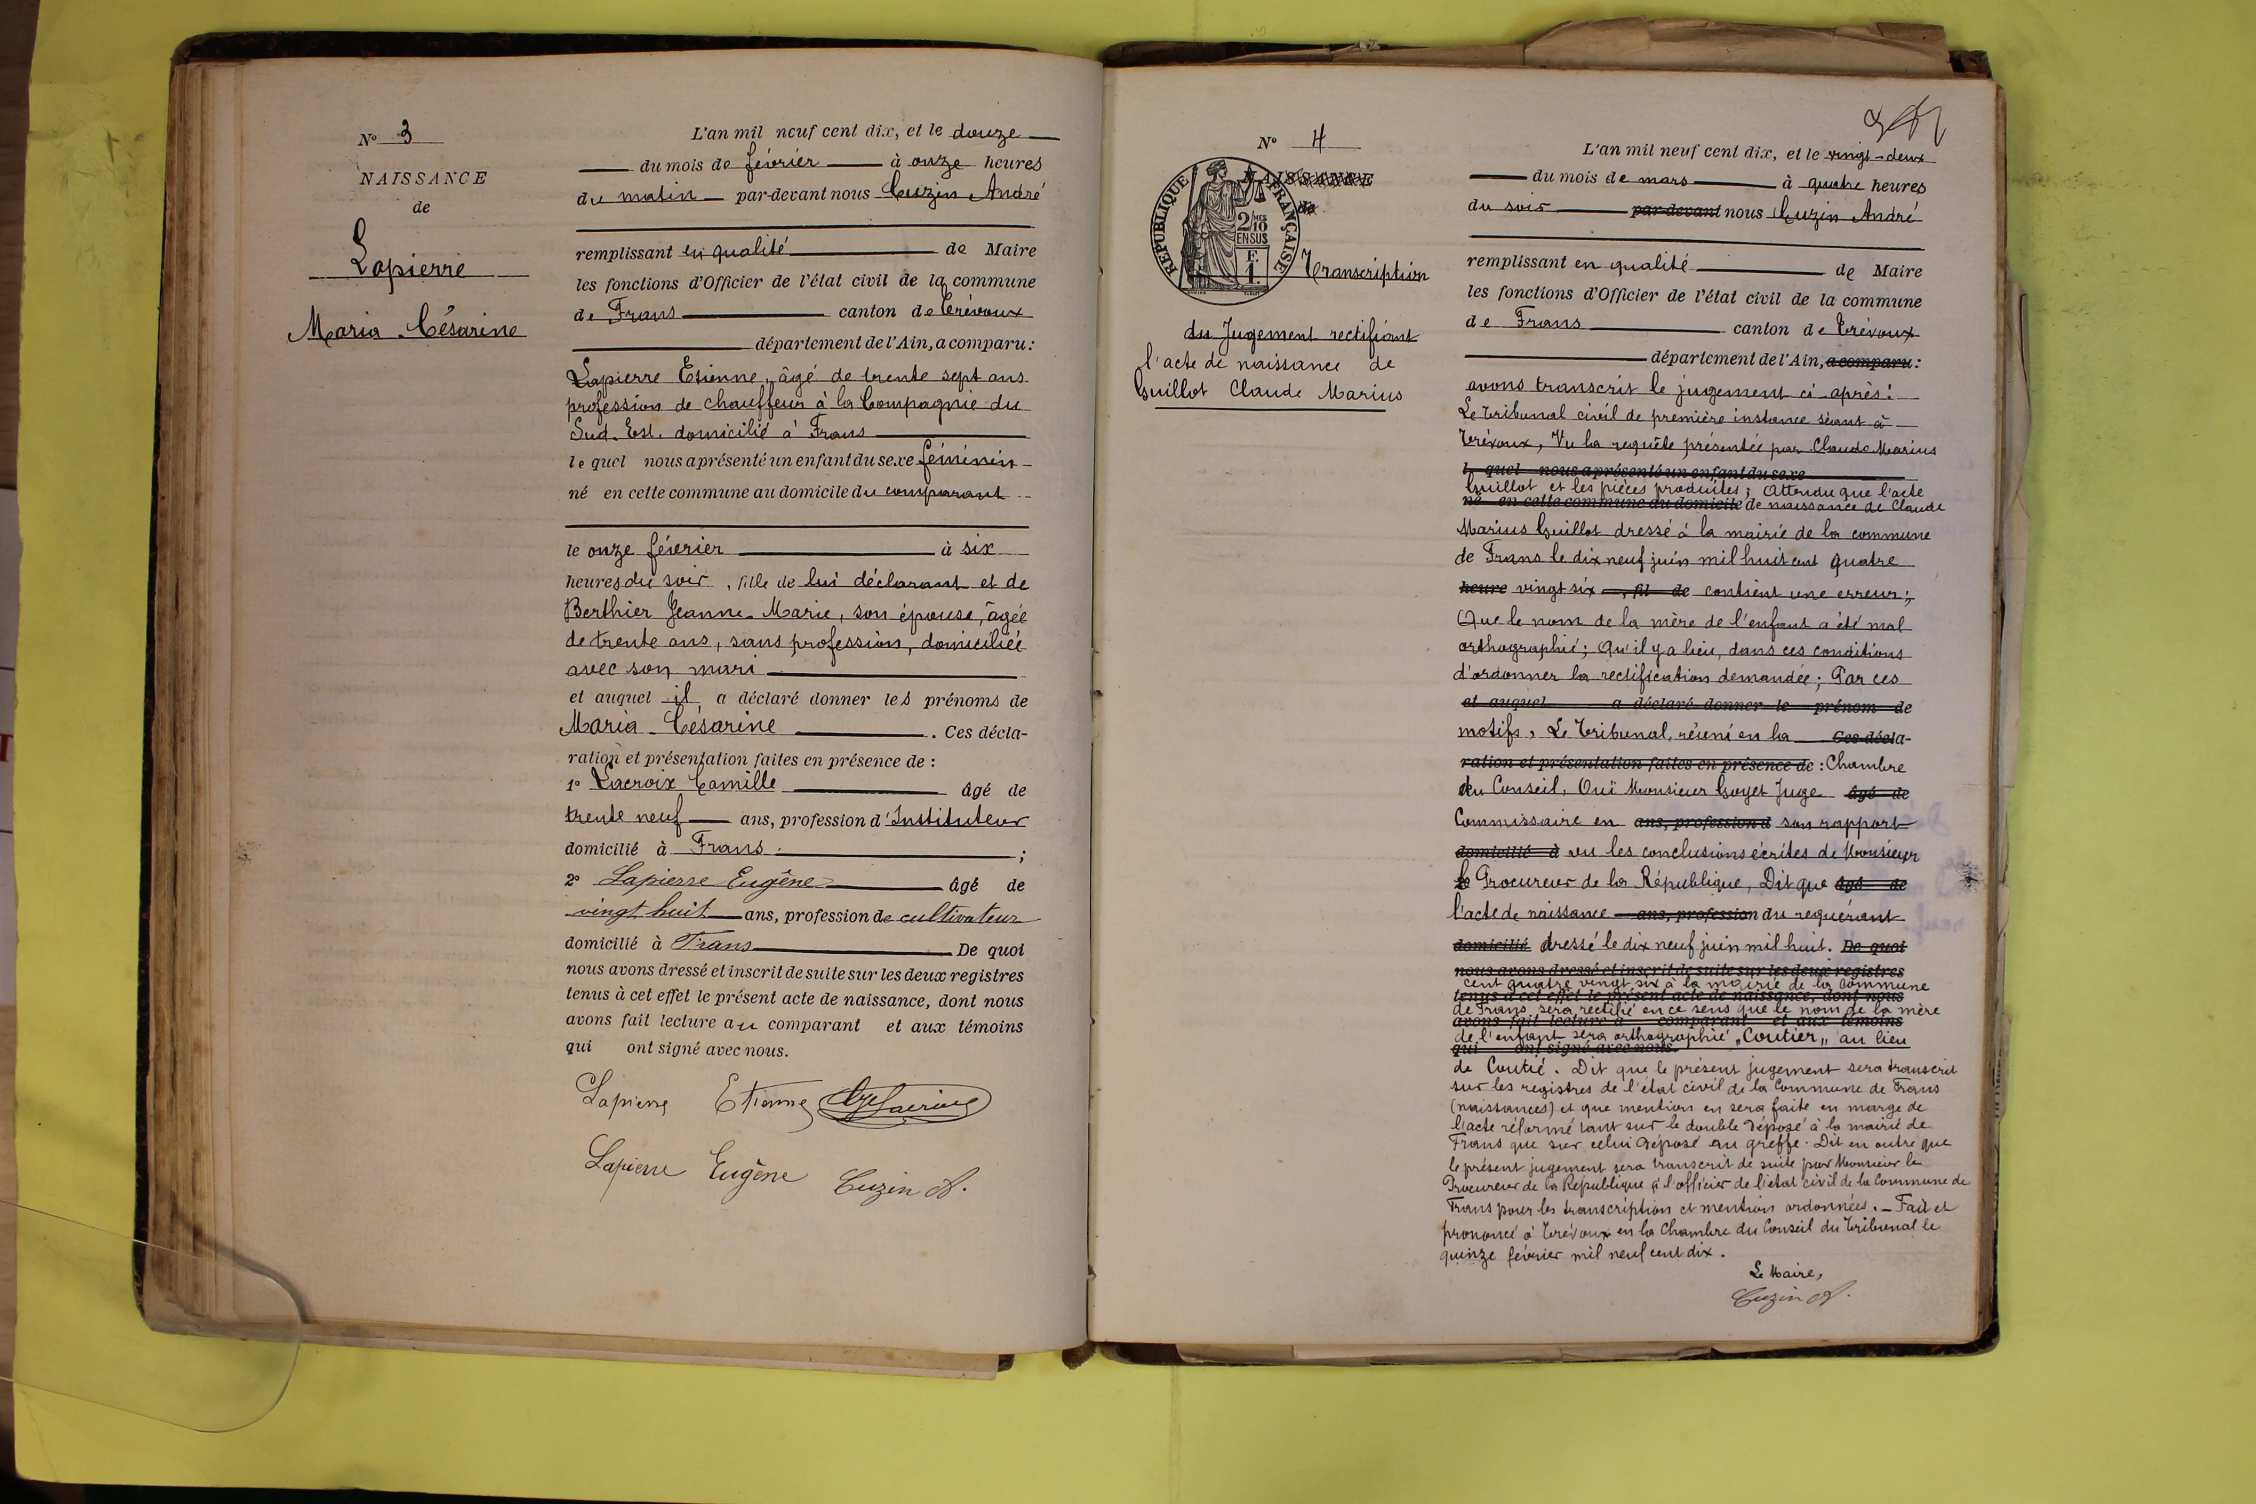 N° 3
NAISSANCE
de
Lapierre
Maria Césarine
L'an mil neuf cent dix, et le douze
du mois de février à onze heures
du matin par-devant nous Cuzin André
remplissant en qualité de Maire
les fonctions d'Officier de l'état civil de la commune
de Frans canton de Trévoux
département de l'Ain, a comparu :
Lapierre Etienne, âgé de trente sept ans
profession de chauffeur à la Compagnie du
Sud-Est. domicilié à Frans
lequel nous a présenté un enfant du sexe féminin
né en cette commune au domicile du comparant
le onze février à six
heures du soir, fille de lui déclarant et de
Berthier Jeanne-Marie, son épouse, âgée
de trente ans, sans profession, domiciliée
avec son mari
et auquel il a déclaré donner les prénoms de
Maria Césarine . Ces décla-
ration et présentation faites en présence de :
1° Lacroix Camille âgé de
trente neuf ans, profession d'Instituteur
domicilié à Frans ;
2° Lapierre Eugène âgé de
vingt huit ans, profession de cultivateur
domicilié à Frans De quoi
nous avons dressé et inscrit de suite sur les deux registres
tenus à cet effet le présent acte de naissance, dont nous
avons fait lecture au comparant et aux témoins
qui ont signé avec nous.
Lapierre Etienne Lacroix
Lapierre Eugène Cuzin A.
N° 4
NAISSANCE
de
RÉPUBLIQUE FRANÇAISE
2/10
EN SUS
Transcription
du Jugement rectifiant
l'acte de naissance de
Guillot Claude Marius
L'an mil neuf cent dix, et le vingt-deux
du mois de mars à quatre heures
du soir par-devant nous Cuzin André
remplissant en qualité de Maire
les fonctions d'Officier de l'état civil de la commune
de Frans canton de Trévoux
département de l'Ain, a comparu :
avons transcrit le jugement ci-après :
Le Tribunal civil de première instance séant à
Trévoux, Vu la requête présentée par Claude Marius
l quel nous a présenté un enfant du sexe
Guillot et les pièces produites ; Attendu que l'acte
né en cette commune au domicile de naissance de Claude
Marius Guillot dressé à la mairie de la commune
de Frans le dix neuf juin mil huit cent quatre
heure vingt six , fil de contient une erreur ;
Que le nom de la mère de l'enfant a été mal
orthographié ; Qu'il y a lieu, dans ces conditions
d'ordonner la rectification demandée ; Par ces
et auquel a déclaré donner le prénom de
motifs, Le Tribunal, réuni en la Ces décla-
ration et présentation faites en présence de : Chambre
du Conseil, Ouï Monsieur Goyet Juge âgé de
Commissaire en ans, profession d son rapport
domicilié à vu les conclusions écrites de Monsieur
le Procureur de la République, Dit que âgé de
l'acte de naissance ans, profession du requérant
domicilié dressé le dix neuf juin mil huit. De quoi
nous avons dressé et inscrit de suite sur les deux registres
cent quatre vingt six à la mairie de la commune
tenus à cet effet le présent acte de naissance, dont nous
de Frans sera rectifié en ce sens que le nom de la mère
avons fait lecture a comparant et aux témoins
de l'enfant sera orthographié „Coutier„ au lieu
qui ont signé avec nous.
de Coutié. Dit que le présent jugement sera transcrit
sur les registres de l'état civil de la Commune de Frans
(naissances) et que mention en sera faite en marge de
l'acte réformé tant sur le double déposé à la mairie de
Frans que sur celui déposé au greffe. Dit en outre que
le présent jugement sera transcrit de suite par Monsieur le
Procureur de la République à l'officier de l'état civil de la Commune de
Frans pour les transcription et mention ordonnées. – Fait et
prononcé à Trévoux en la Chambre du Conseil du Tribunal le
quinze février mil neuf cent dix.
Le Maire,
Cuzin A.